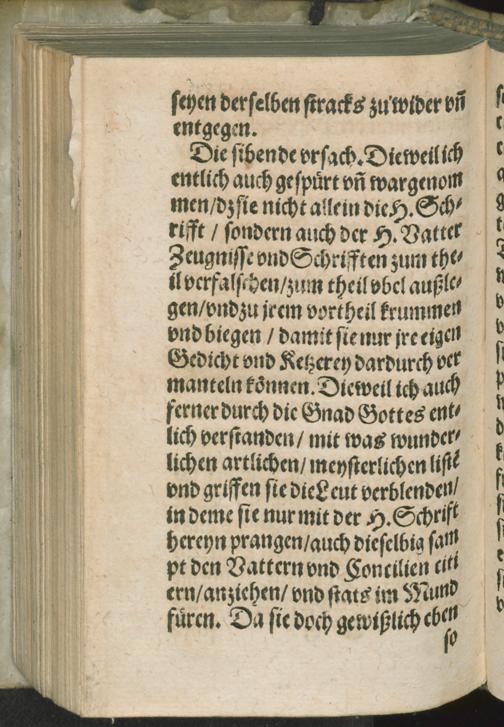 seyen derselben stracks zu wider vñ
entgegen.
Die sibende vrsach. Dieweil ich
entlich auch gespürt vñ wargenom
men/dz sie nicht allein die H. Sch⸗
rifft / sondern auch der H. Vatter
Zeugnisse vnd Schrifften zum the⸗
il verfalschen/zum theil vbel außle⸗
gen/vnd zu jrem vortheil krummen
vnd biegen / damit sie nur jre eigen
Gedicht vnd Ketzerey dardurch ver
manteln können. Dieweil ich auch
ferner durch die Gnad Gottes ent⸗
lich verstanden/ mit was wunder⸗
lichen artlichen/ meysterlichen listẽ
vnd griffen sie die Leut verblenden/
in deme sie nur mit der H. Schrift
hereyn prangen/auch dieselbig sam
pt den Vattern vnd Concilien citi
ern/anziehen/ vnd stats im Mund
füren. Da sie doch gewißlich eben
so